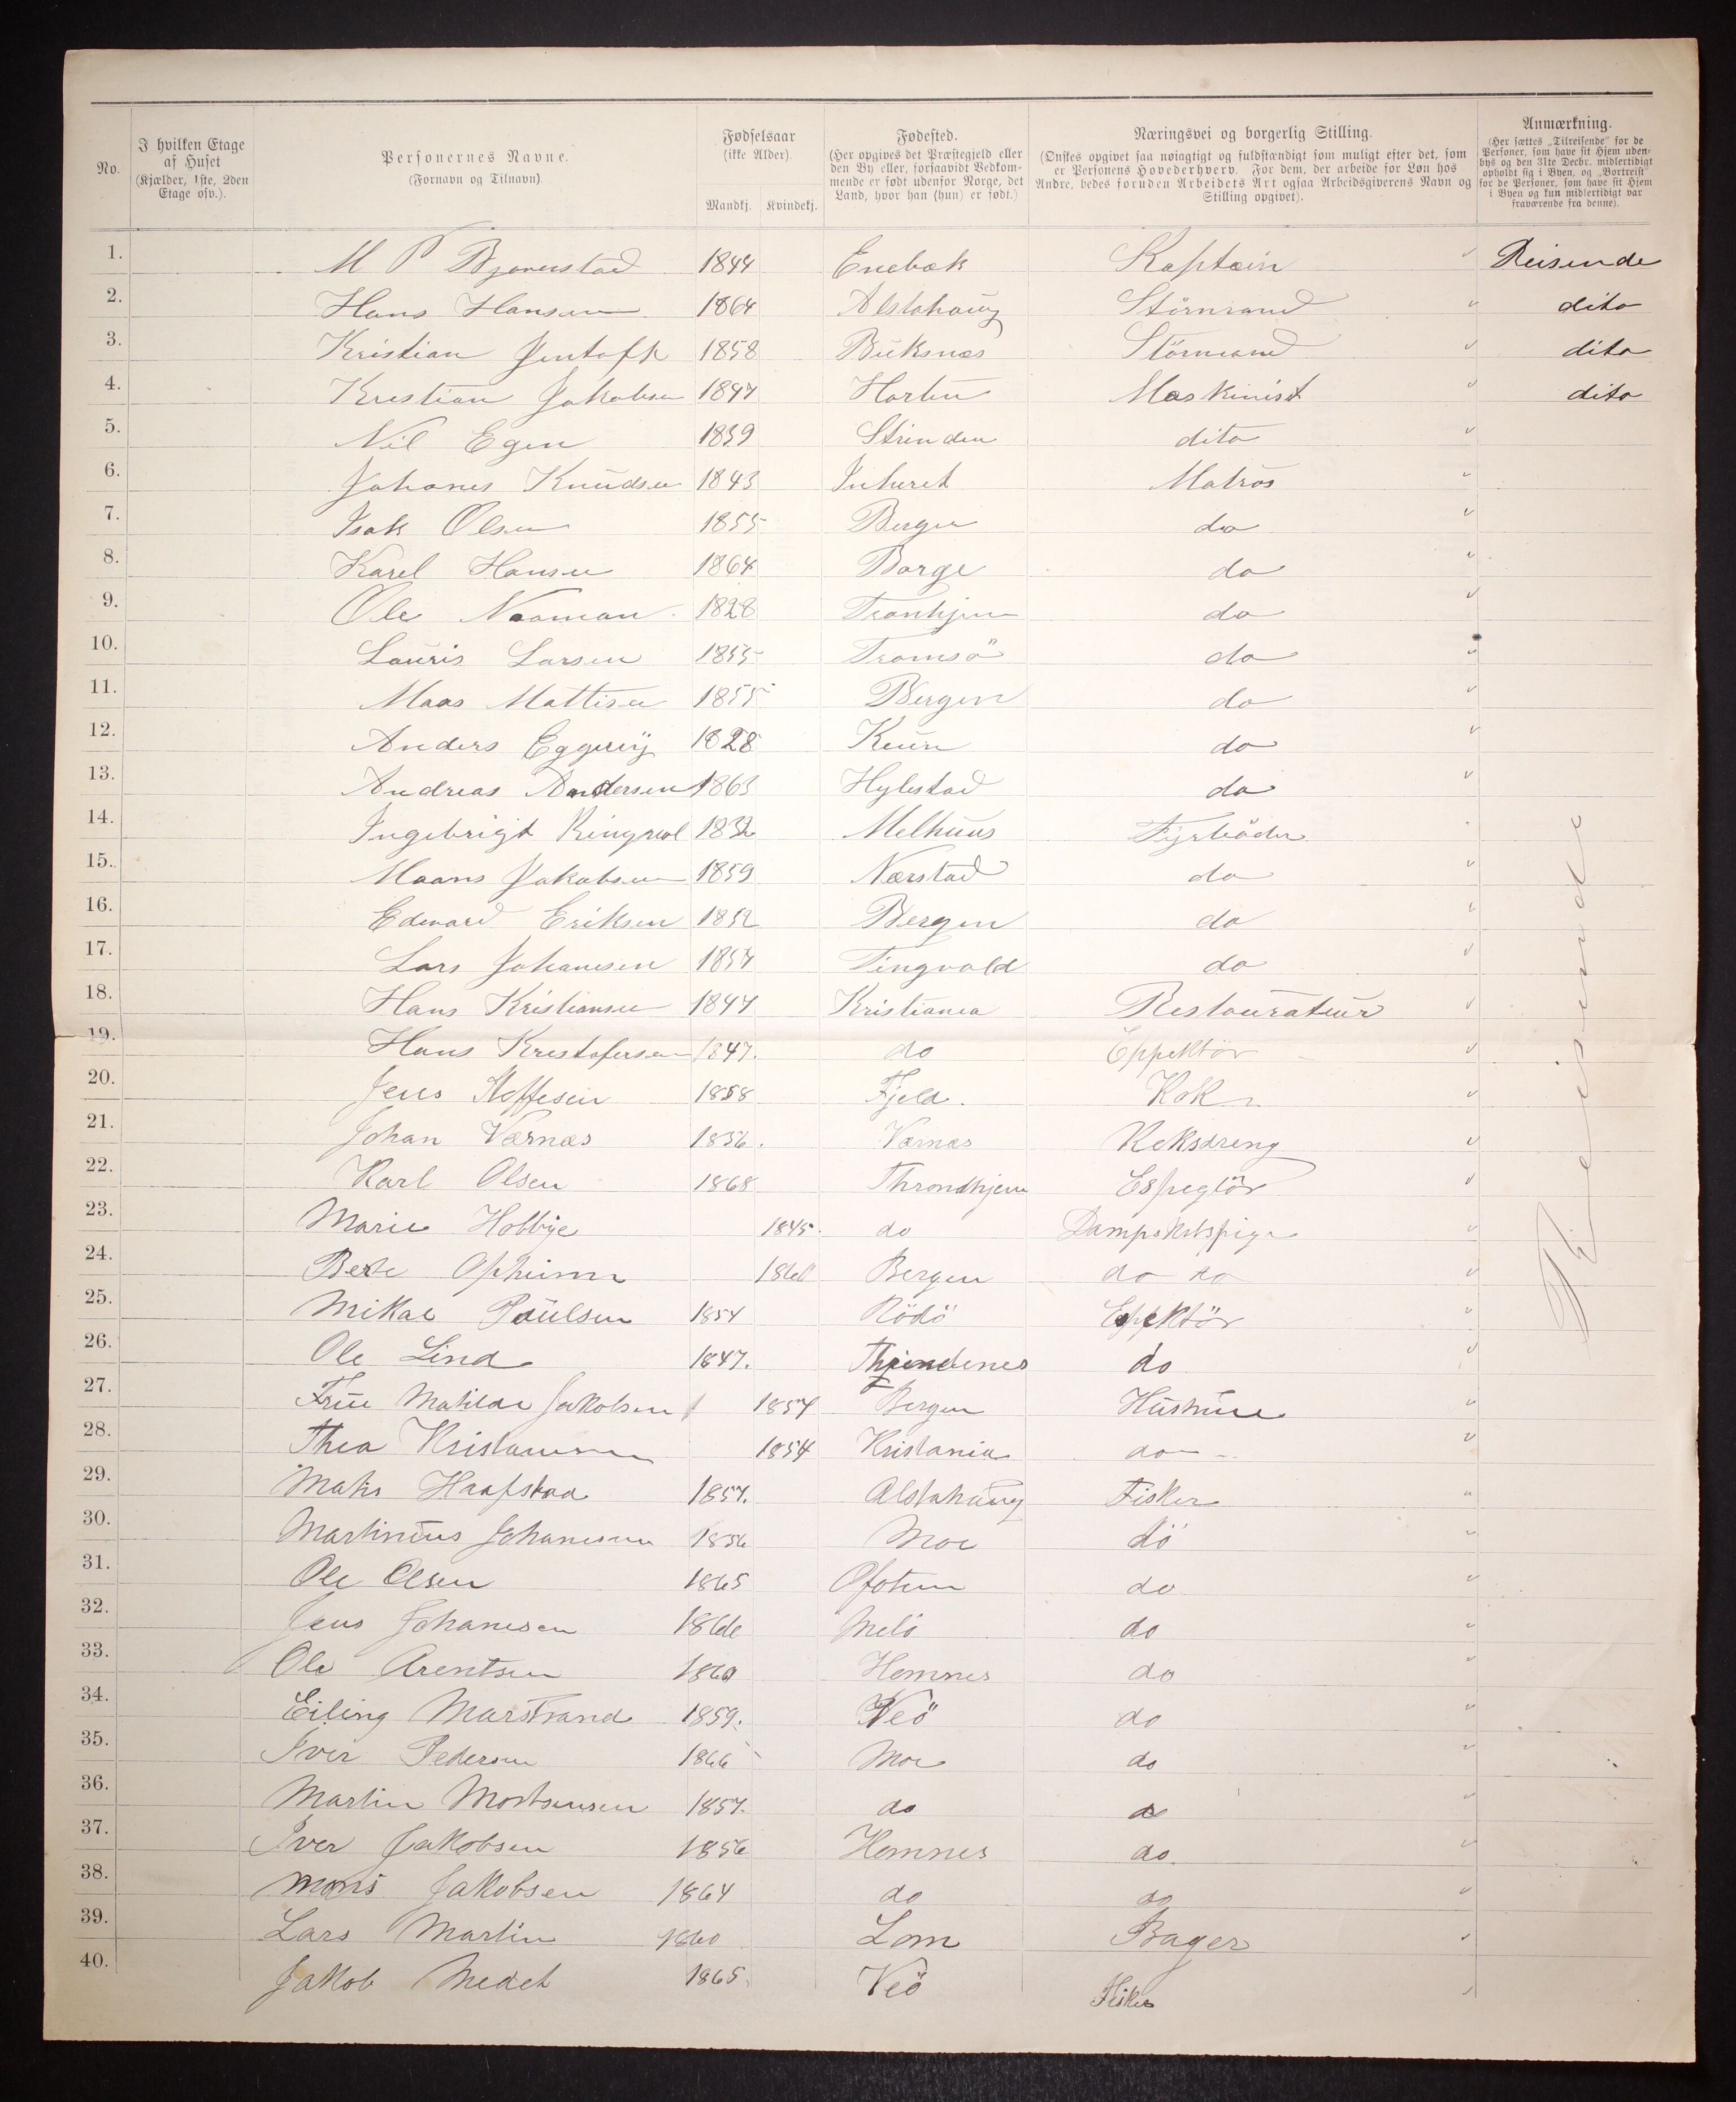 No.
I hvilken Etage af Huset (Kjælder, 1ste, 2den Etage osv.).
Personernes Navne. (Fornavn og Tilnavn).
Fødselsaar (ikke Alder). Mandkj. Kvindekj.
Fødested. (Her opgives det Præstegjeld eller den By eller, forsaavidt Vedkommende er født udenfor Norge, det Land, hvor han (hun) er født.)
Næringsvei og borgerlig Stilling. (Ønskes opgivet saa nøiagtigt og fuldstændigt som muligt efter det, som er Personens Hovederhverv. For dem, der arbeide for Løn hos Andre, bedes foruden Arbeidets Art ogsaa Arbeidsgiverens Navn og Stilling opgivet).
Anmærkning. (Her sættes „Tilreisende" for de Personer, som have sit Hjem udenbys og den 31te Decbr. midlertidigt opholdt sig i Byen, og „Bortreist" for de Personer, som have sit Hjem i Byen og kun midlertidigt var fraværende fra denne).
1. M P Bjonerstad 1844 Enebak Kaptein Reisende
2. Hans Hansen 1864 Alstahaug Störmand dito
3. Kristian Jentoft 1858 Buksnæs Störmand dito
4. Kristian Jakobsen 1847 Horten Maskinist dito
5. Nil Egen 1839 Strinden dito
6. Johanes Knudsen 1843 Matros
7. Isak Olsen 1855 Bergen do
8. Karel Hansen 1864 Borge do
9. Ole Naaman 1828 Tronhjem do
10. Lauris Larsen 1855 Tromsö do
11. Maas Mattisen 1855 Bergen do
12. Anders 1828 do
13. Andreas Andersen 1863 Hylestad do
14. Ingebrigt 1832 Melhuus Fyrböder
15. Maans Jakobsen 1859 Nærstad do
16. Edevard Eriksen 1852 Bergen do
17. Lars Johanesen 1857 Tingvold do
18. Hans Kristiansen 1847 Kristiania Restaurateur
19. Hans Kristofersen 1847. do Eppektör
20. Jens Steffesen 1858 Fjeld. Kok
21. Johan Værnæs 1856. Værnæs Koksdreng
22. Karl Olsen 1868 Throndhjem Espegtör
23. Marie Hobbye 1845. do Dampskibspige
24. Opheim Bergen do do
25. Mikal Paulsen 1854 Rödö Eppektör
26. Ole Lind 1847. do
27. Frue Matilde Jakobsen 1857 Bergen Hustrue
28. Thea Kristiansen 1854 Kristania do
29. Matis 1857. Alstahaug Fisker
30. Martinius Johanesen 1856 Moe do
31. Ole Olsen 1865 Ofoten do
32. Jens Johanesen Melö do
33. Ole Arentsen 1860 Hemnes do
34. Eiling Marstrand 1859. Veö do
35. Iver Pedersen 1866 Moe do
36. Martin Mortsensen 1857. do do
37. Iver Jakobsen 1856 Hemnes do.
38. Mons Jakobsen 1864 do do
39. Lars Martin 1860 Lom Bager
40. Jakob Medet 1865. Veö Fisker
Reisende